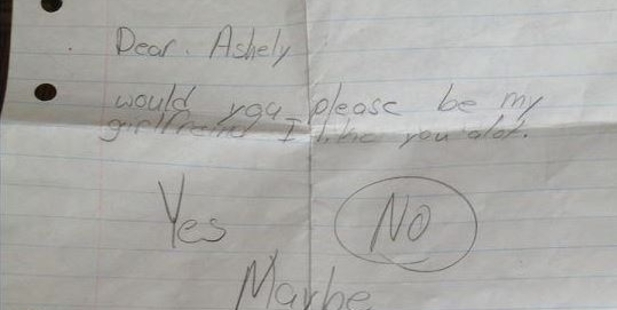 Dear. Ashely
would you please be my
girlfreind I like you alot.
Yes NO
Maybe